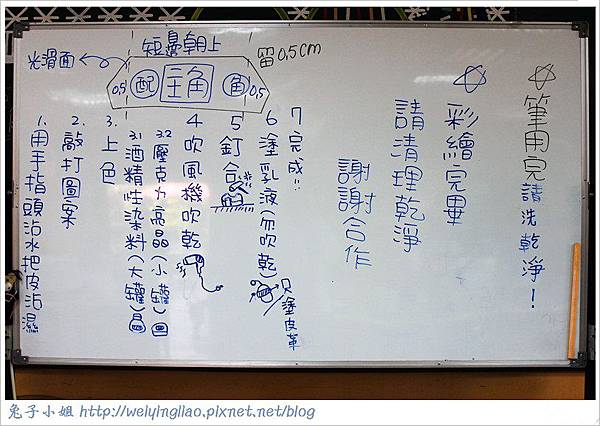 短邊朝上
留0.5cm
光滑面
0.5 配 主角 角 0.5
1.用手指頭沾水把皮沾濕
2.敲打圖案
3.上色
3.1酒精性染料(大罐)
3.2壓克力高晶(小罐)
4.吹風機吹乾
5.釘合
6.塗乳液(勿吹乾)
只塗皮革
7.完成!!
☆筆用完請洗乾淨!
☆彩繪完畢
請清理乾淨
謝謝合作
兔子小姐 http://welyingliao.pixnet.net/blog